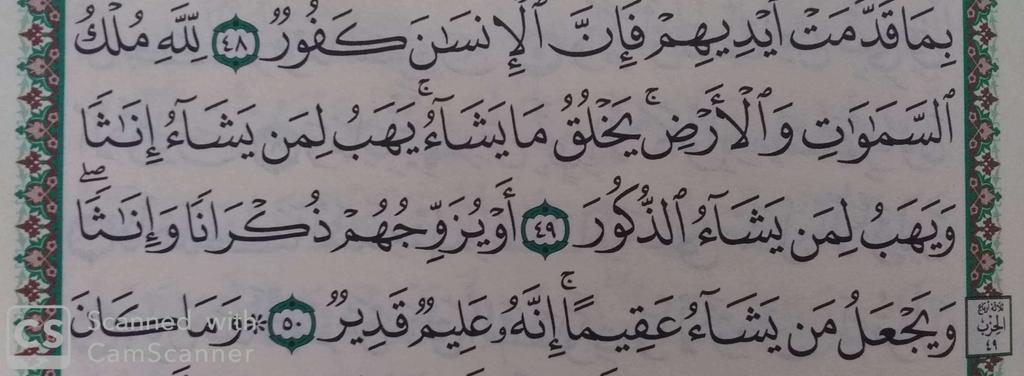 بِمَا قَدَّمَتْ أَيْدِيهِمْ فَإِنَّ ٱلْإِنسَٰنَ كَفُورٌ ٤٨ لِّلَّهِ مُلْكُ
ٱلسَّمَٰوَٰتِ وَٱلْأَرْضِ ۚ يَخْلُقُ مَا يَشَآءُ ۚ يَهَبُ لِمَن يَشَآءُ إِنَٰثًا
وَيَهَبُ لِمَن يَشَآءُ ٱلذُّكُورَ ٤٩ أَوْ يُزَوِّجُهُمْ ذُكْرَانًا وَإِنَٰثًا ۖ
وَيَجْعَلُ مَن يَشَآءُ عَقِيمًا ۚ إِنَّهُۥ عَلِيمٌ قَدِيرٌ ٥٠ ۞ وَمَا كَانَ
الحزب
٤٩
CS Scanned with
CamScanner